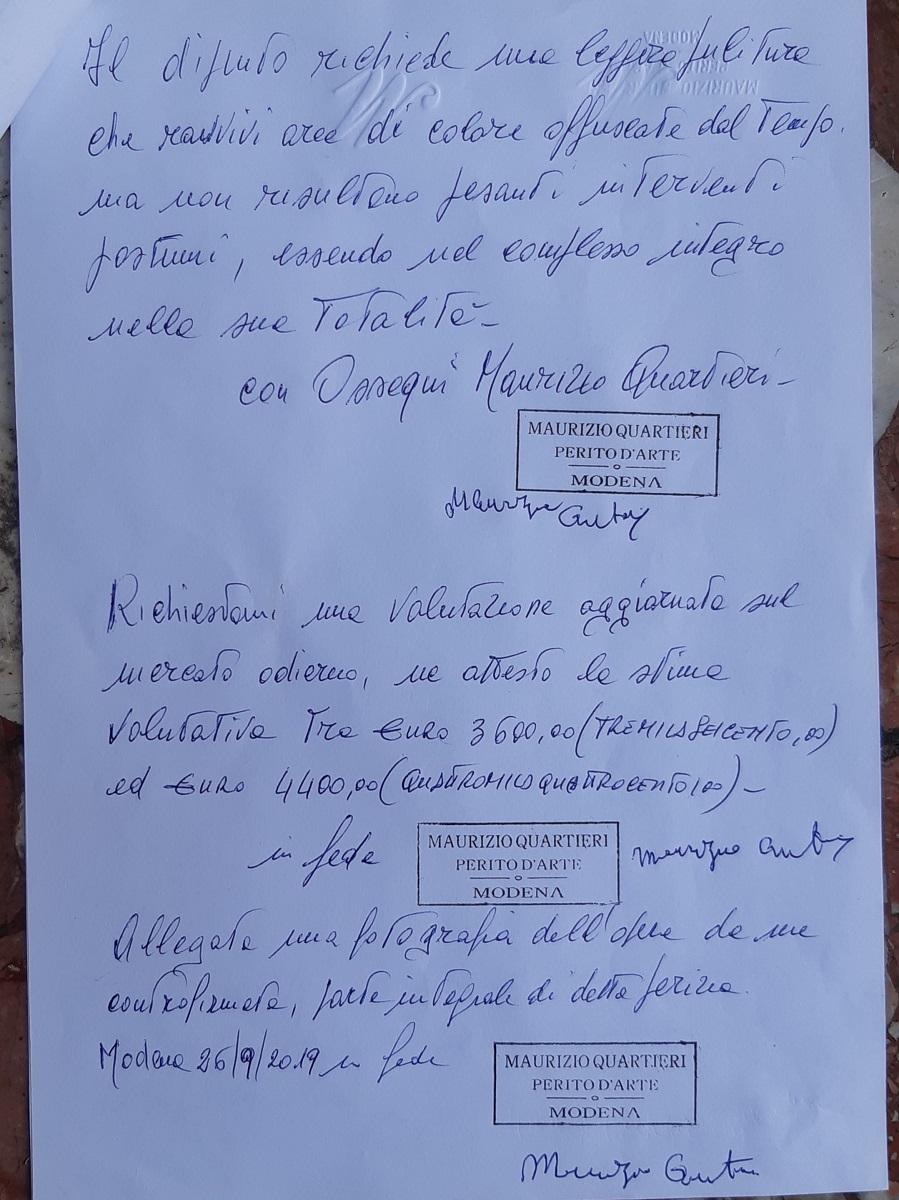 Il dipinto richiede una leggera pulitura
che ravvivi aree di colore offuscate dal Tempo.
ma non risultano pesanti interventi
postumi, essendo nel complesso integro
nella sua Totalità-
con Ossequi Maurizio Quartieri-
MAURIZIO QUARTIERI
PERITO D'ARTE
MODENA
Richiestami una valutazione aggiornata sul
mercato odierno, ne attesto la stima
valutativa Tra Euro 3600,00 (TREMILASEICENTO,00)
ed Euro 4400,00 (QUATTROMILAQUATTROCENTO,00)-
in fede
MAURIZIO QUARTIERI
PERITO D'ARTE
MODENA
Allegata una fotografia dell'opera da me
controfirmata, parte integrale di detta perizia.
Modena 26/9/2019 in fede
MAURIZIO QUARTIERI
PERITO D'ARTE
MODENA